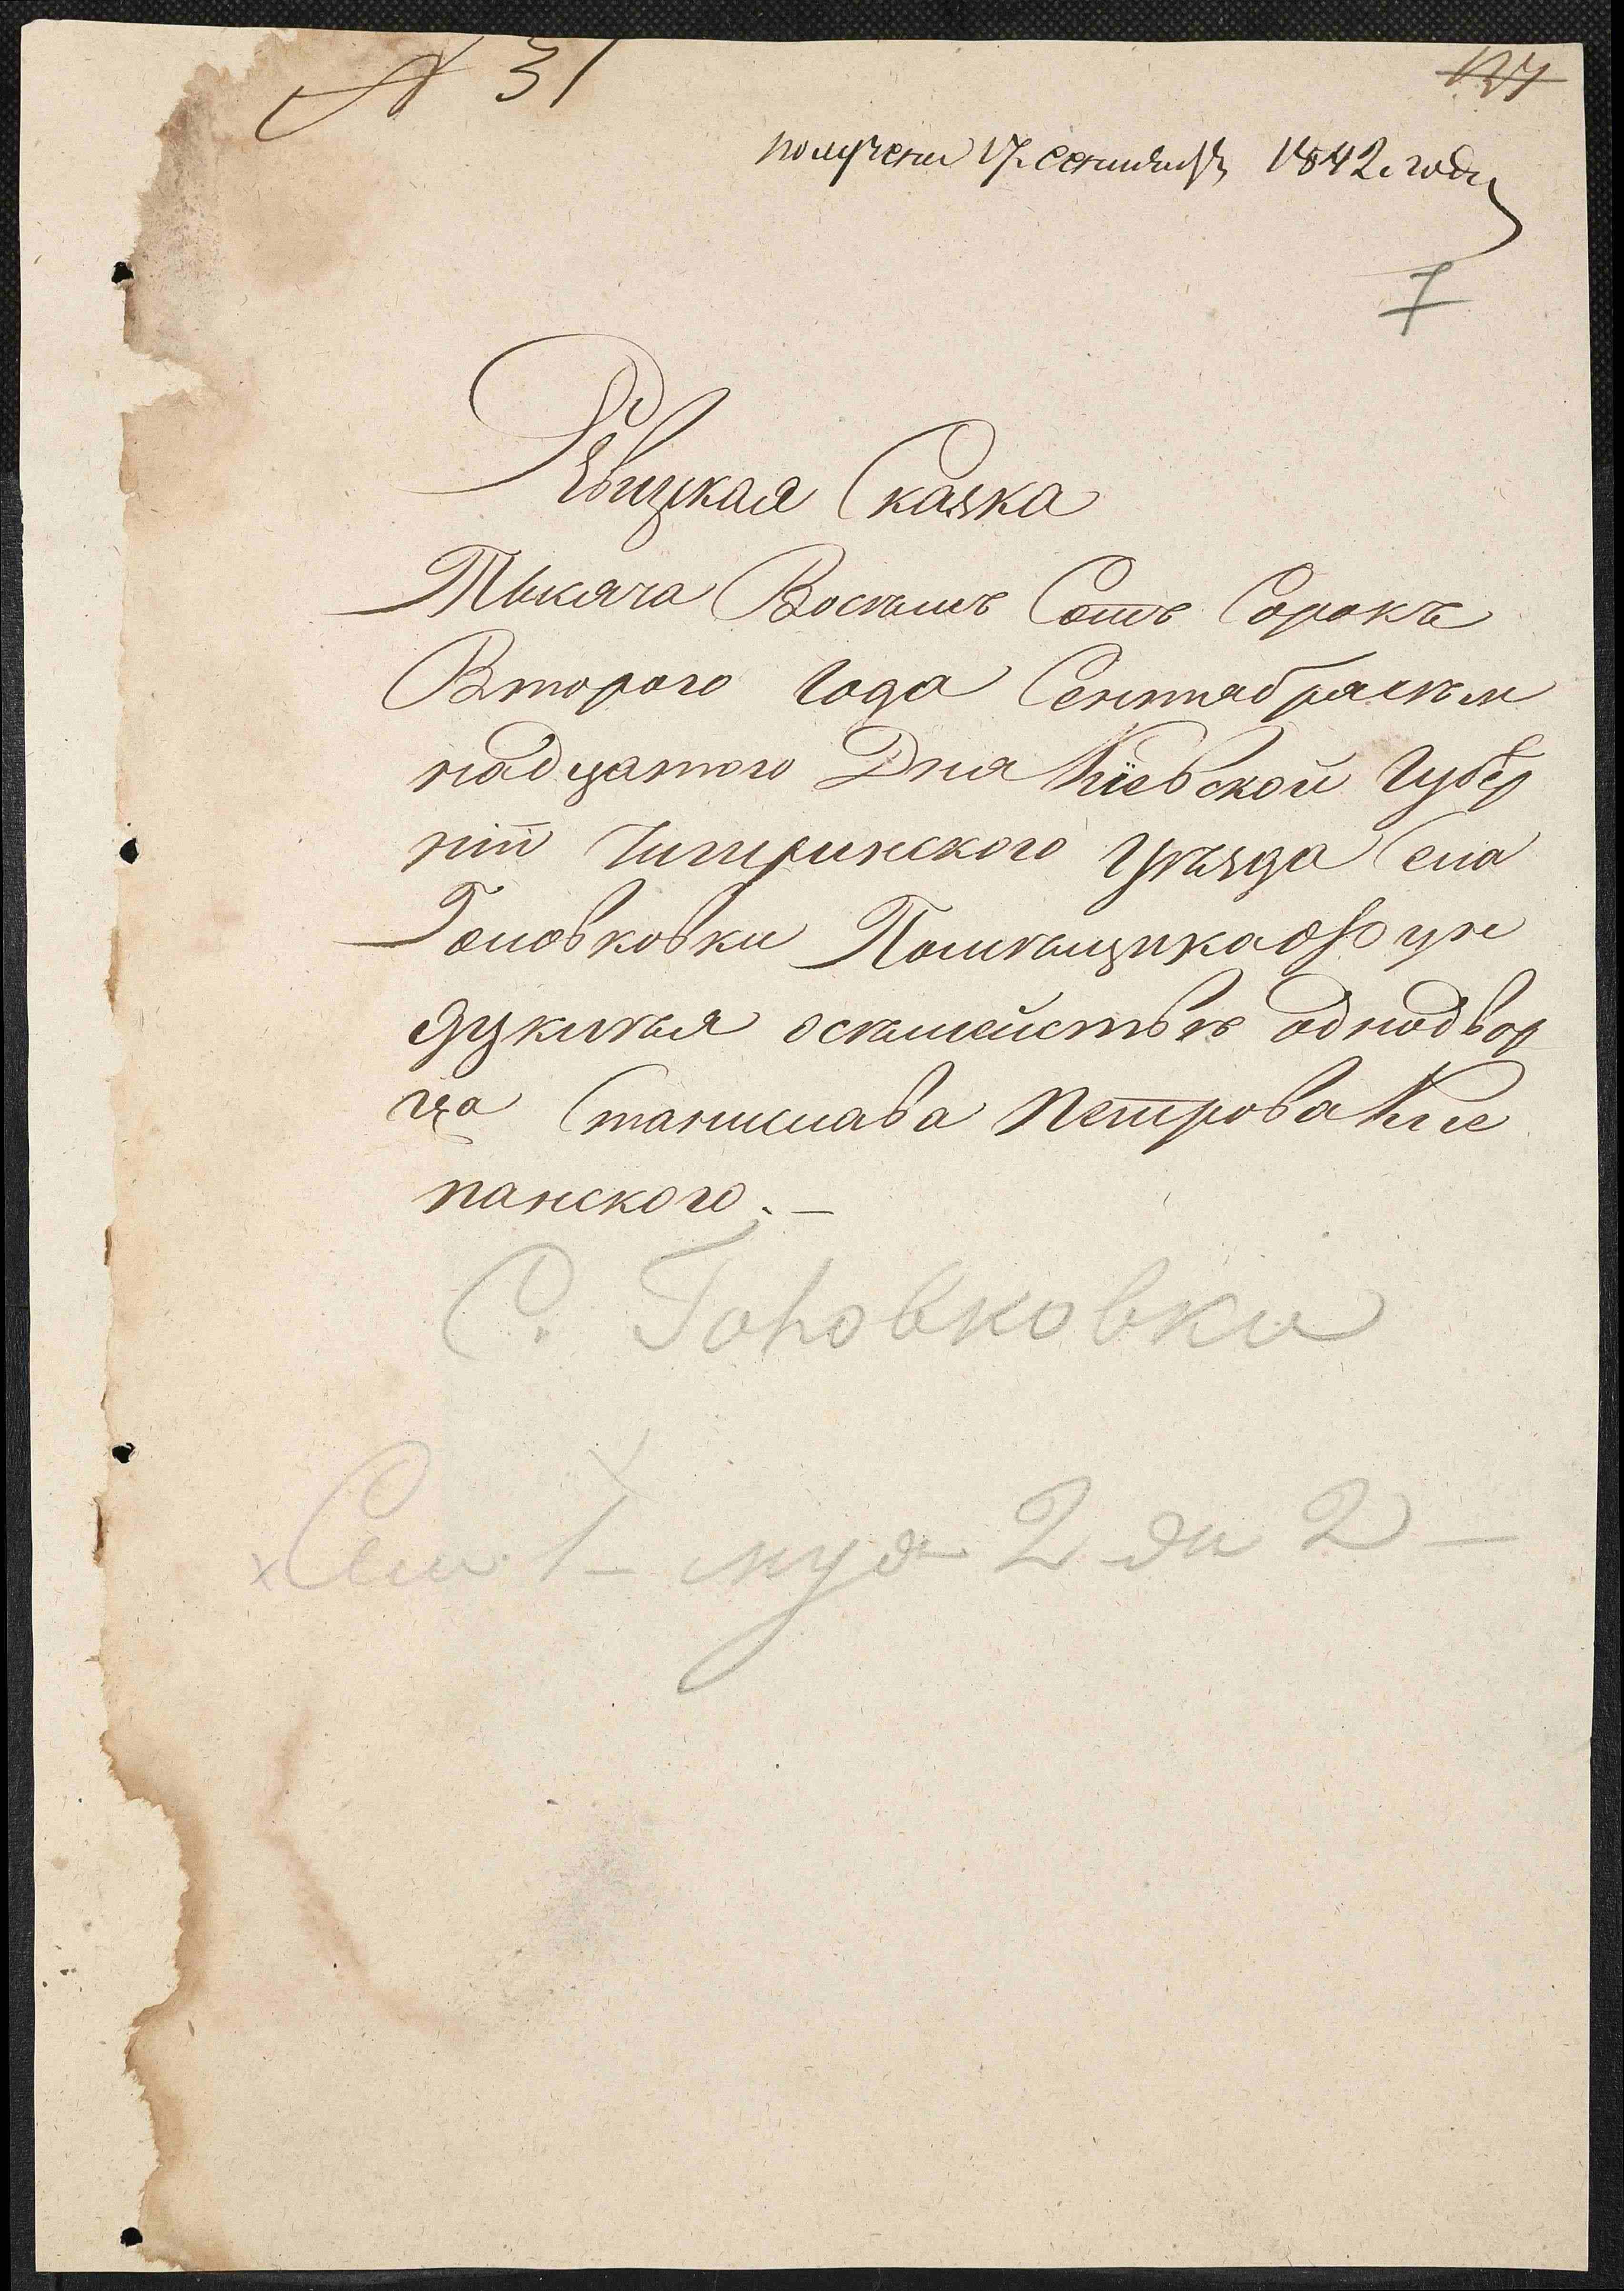 № 31
127
получена 17. сентября 1842. года
7
Ревицкая Скаска
Тысяча Восемь Сотъ Сорокъ
Второго года Сентября семъ
надцатого Дня Кіевской Губер
ніи Чигиринского Уѣзда Села
Головковки Помѣщика
осемействѣ однодвор
ца Станислава Петрова Кле
панского. —
С. Головковки
Сем. 1 — муж 2 жн 2 —